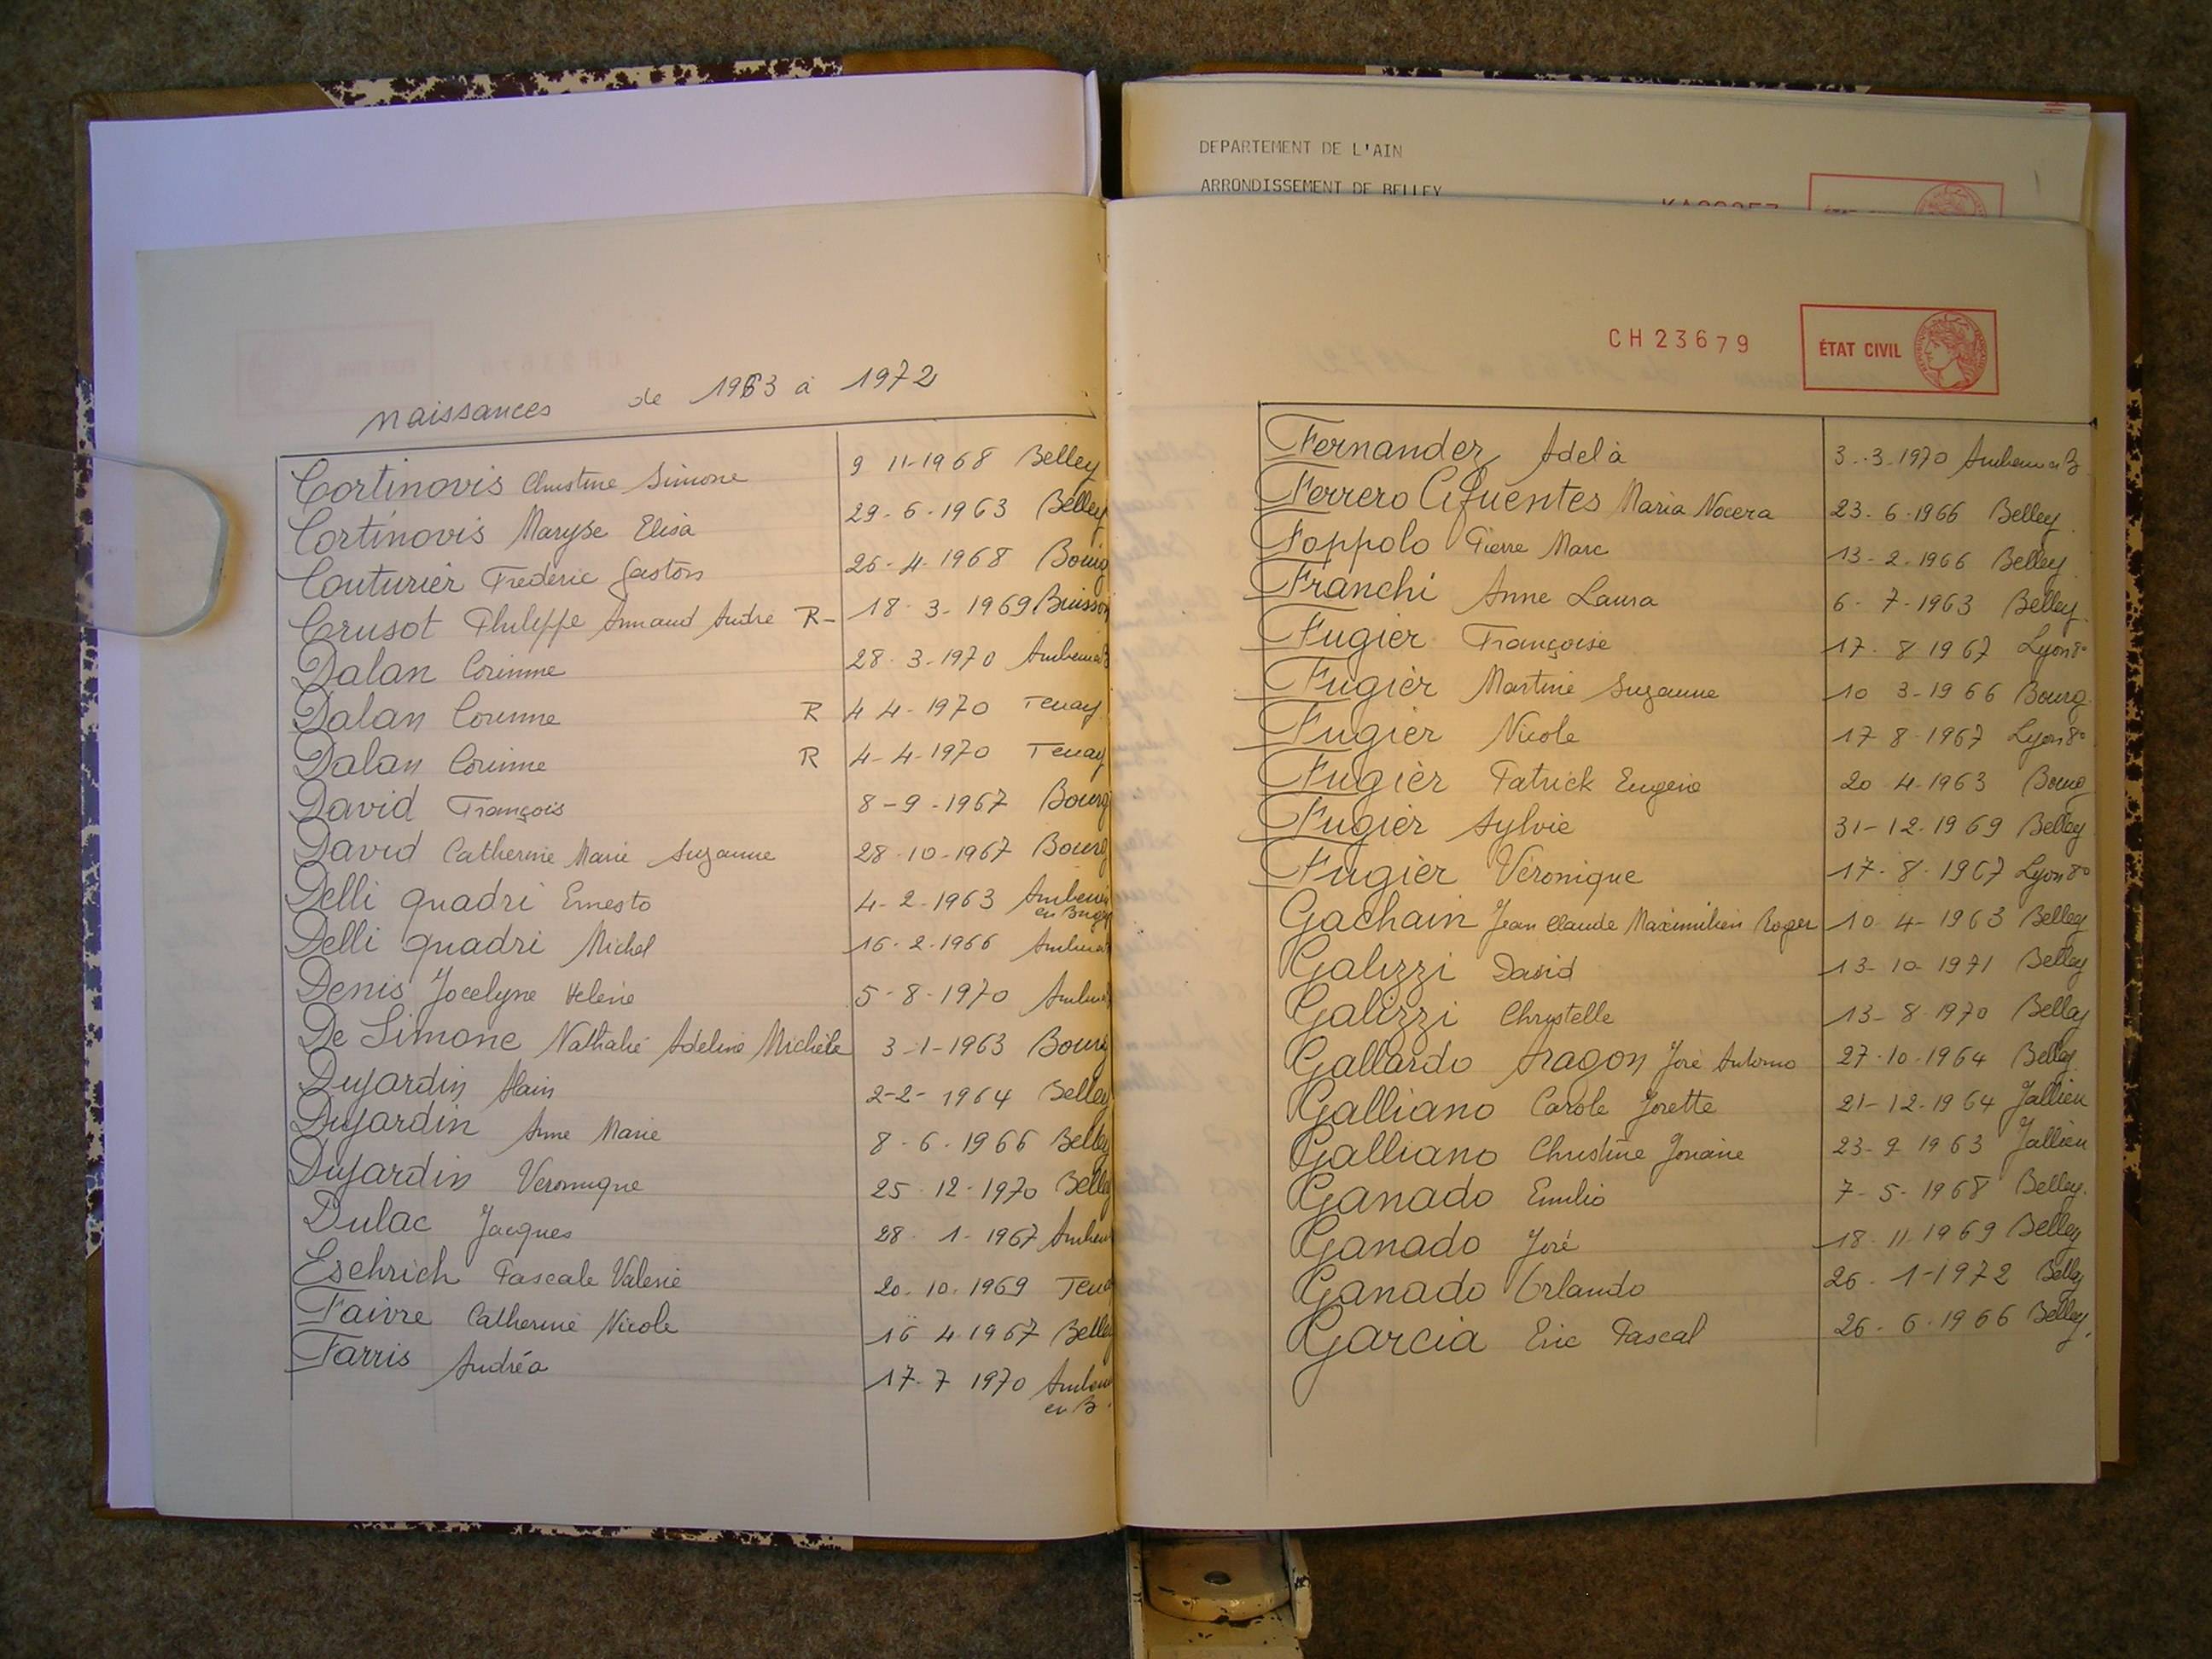 naissances de 1963 à 1972
Cortinovis Christine Simone 9 11-1968 Belley
Cortinovis Maryse Elisa 29-6-1963 Belley
Couturier Frédéric Gaston 26-4-1968 Bourg
Crusot Philippe Armand Andre R- 18-3-1969
Dalan Corinne 28-3-1970
Dalan Corinne R 4 4-1970 Tenay
Dalan Corinne R 4-4-1970 Tenay
David François 8-9-1967 Bourg
David Catherine Marie Suzanne 28-10-1967 Bourg
Delli quadri Ernesto 4-2-1963
Delli quadri Michel 16-2-1966
Denis Jocelyne Helene 5-8-1970
De Simone Nathalie Adeline Michèle 3-1-1963 Bourg
Dujardin Alain 2-2-1964 Belley
Dujardin Anne Marie 8-6-1966 Belley
Dujardin Veronique 25-12-1970 Belley
Dulac Jacques 28-1-1967
Eschrich Pascale Valerie 20-10-1969
Faivre Catherine Nicole 16 4 1967 Belley
Farris Andréa 17-7 1970
en B.
DEPARTEMENT DE L'AIN
ARRONDISSEMENT DE BELLEY
CH23679
ÉTAT CIVIL
Fernandez Adela 3-3-1970
Ferrero Cifuentes Maria Nocera 23-6-1966 Belley
Foppolo Pierre Marc 13-2-1966 Belley
Franchi Anne Laura 6-7-1963 Belley
Fugier Françoise 17-8 1967 Lyon 8°
Fugier Martine Suzanne 10 3-1966 Bourg
Fugier Nicole 17-8-1967 Lyon 8°
Fugier Patrick Eugène 20 4-1963 Bourg
Fugier Sylvie 31-12-1969 Belley
Fugier Véronique 17-8-1967 Lyon 8°
Gachain Jean Claude Maximilien Roger 10-4-1963 Belley
Galizzi David 13-10-1971 Belley
Galizzi Christelle 13-8-1970 Belley
Gallardo Aragon José Antonio 27-10-1964 Belley
Galliano Carole Josette 21-12-1964 Jallieu
Galliano Christine Josiane 23-9 1963 Jallieu
Ganado Emilio 7-5-1968 Belley
Ganado José 18-11-1969 Belley
Ganado Orlando 26-1-1972 Belley
Garcia Eric Pascal 26-6-1966 Belley